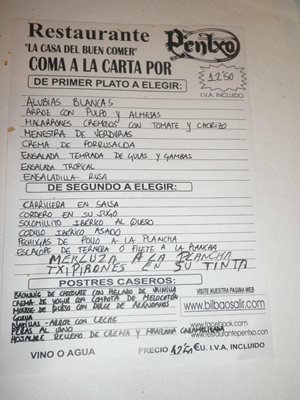 Restaurante Pentxo
"LA CASA DEL BUEN COMER"
COMA A LA CARTA POR 12'50
I.V.A. INCLUIDO
DE PRIMER PLATO A ELEGIR:
ALUBIAS BLANCAS
ARROZ CON PULPO Y ALMEJAS
MACARRONES CREMOSOS CON TOMATE Y CHORIZO
MENESTRA DE VERDURAS
CREMA DE PORRUSALDA
ENSALADA TEMPLADA DE GULAS Y GAMBAS
ENSALADA TROPICAL
ENSALADILLA RUSA
DE SEGUNDO A ELEGIR:
CARRILLERA EN SALSA
CORDERO EN SU JUGO
SOLOMILLITO IBÉRICO AL QUESO
CODILLO IBÉRICO ASADO
PECHUGAS DE POLLO A LA PLANCHA
ESCALOPE DE TERNERA O FILETE A LA PLANCHA
MERLUZA A LA PLANCHA
TXIPIRONES EN SU TINTA
POSTRES CASEROS:
DE CHOCOLATE CON HELADO DE VAINILLA
CREMA DE YOGUR CON COMPOTA DE MELOCOTÓN
MOUSSE DE QUESO CON DULCE DE ARÁNDANOS
GOXUA
NATILLAS - ARROZ CON LECHE
PERAS AL VINO
HOJALDRE RELLENO DE CREMA Y MANZANA CARAMELIZADA
VISITE NUESTRA PAGINA WEB
www.bilbaosalir.com
www.facebook.com
www.restaurantepentxo.com
VINO O AGUA
PRECIO 12'50 €U. I.V.A. INCLUIDO